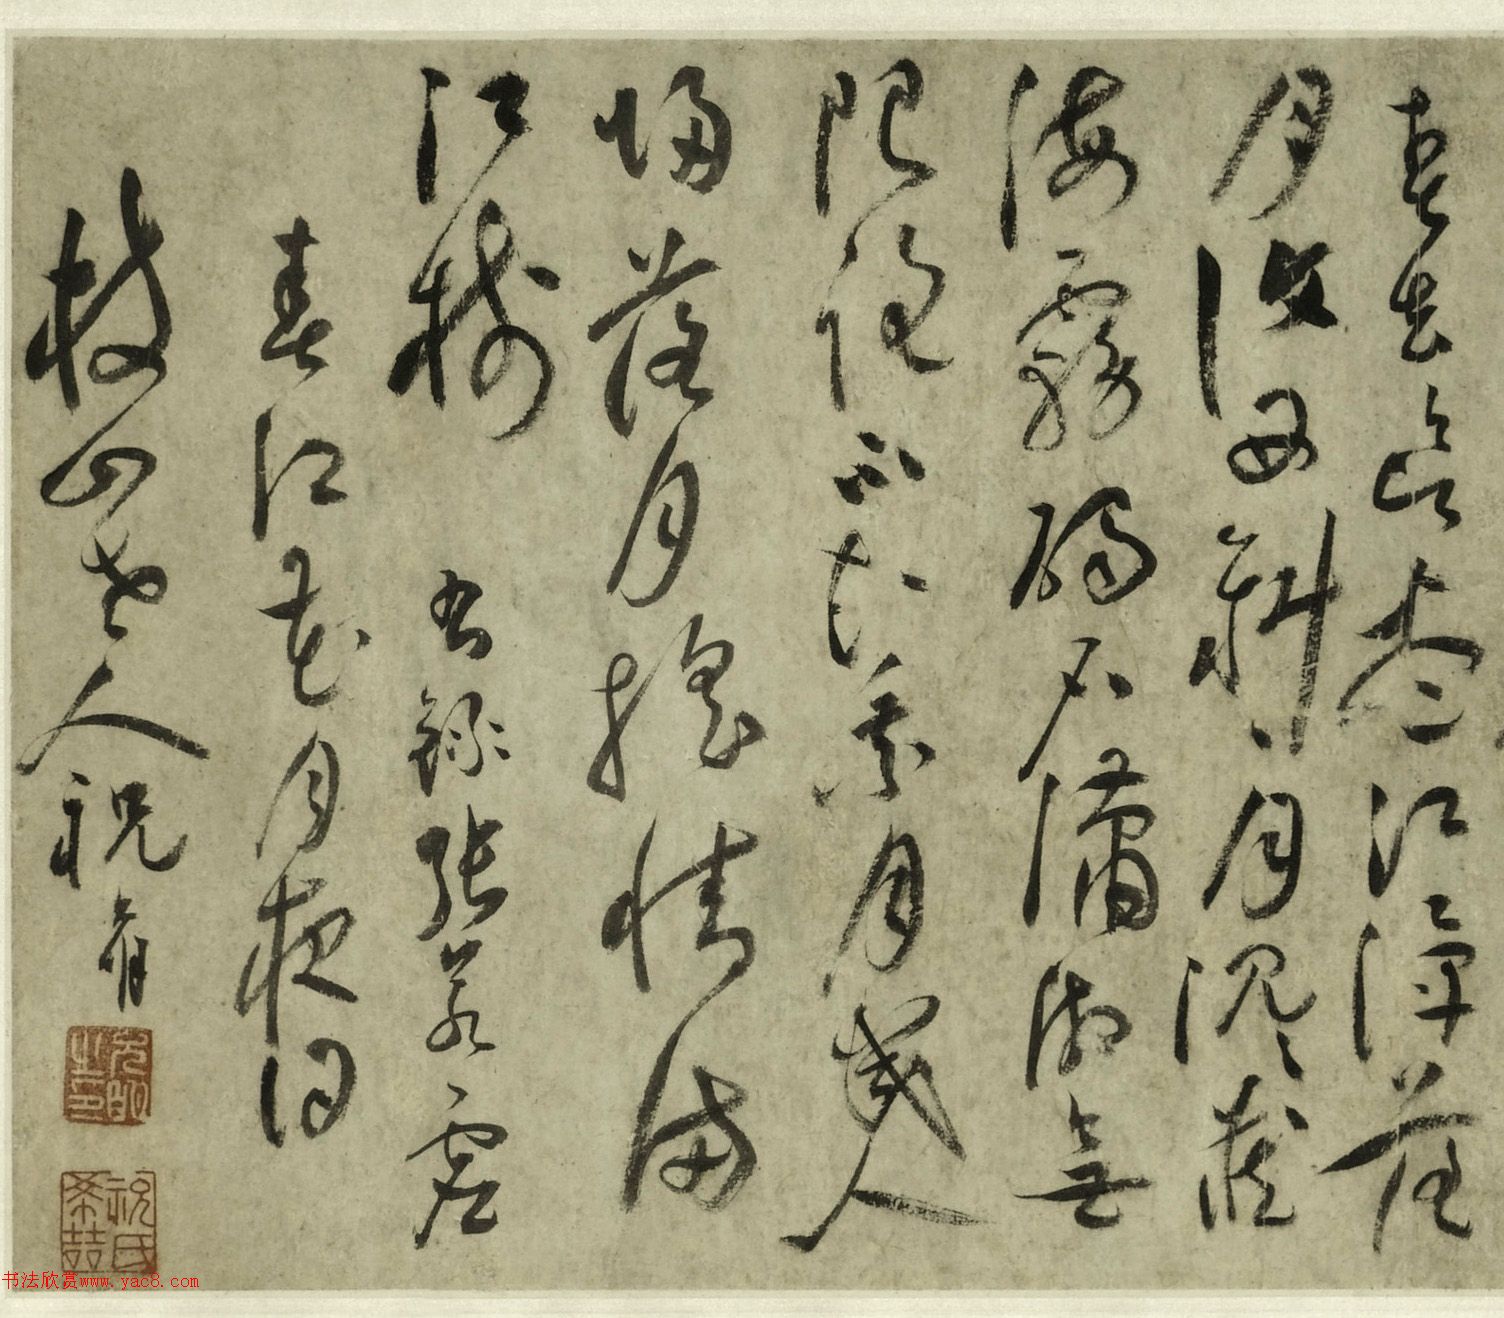 春去欲盡江潭落
月復西斜〻月沉〻藏
海霧碣石瀟湘無
限路不知乘月幾人
歸落月搖情滿
江樹 右錄張若虛
春江花月夜詞
枝山老人祝允明
允明之印
祝氏希哲
书法欣赏www.yac8.com